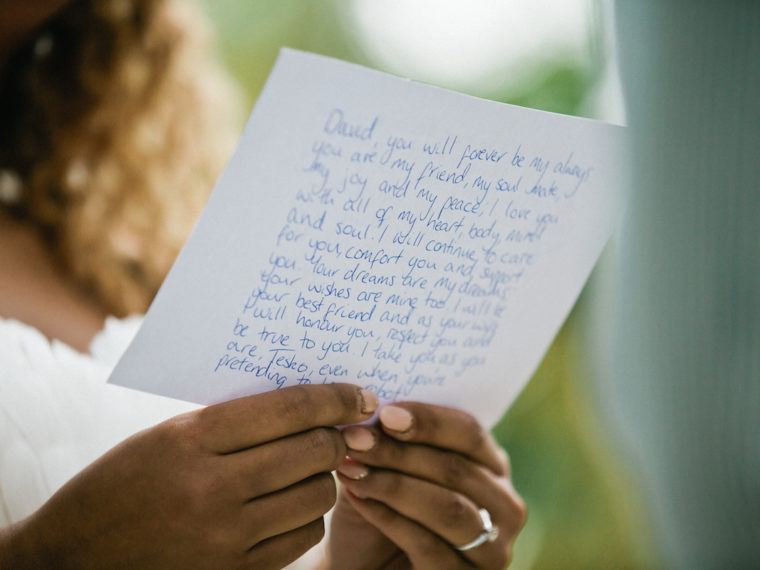 David, you will forever be my always
you are my friend, my soul mate,
my joy and my peace, I love you
with all of my heart, body, mind
and soul. I will continue to care
for you, comfort you and support
you. Your dreams are my dreams
your wishes are mine too. I will be
your best friend and as your wife
I will honour you, respect you and
be true to you. I take you as you
are, Tesko, even when you're
pretending to robot